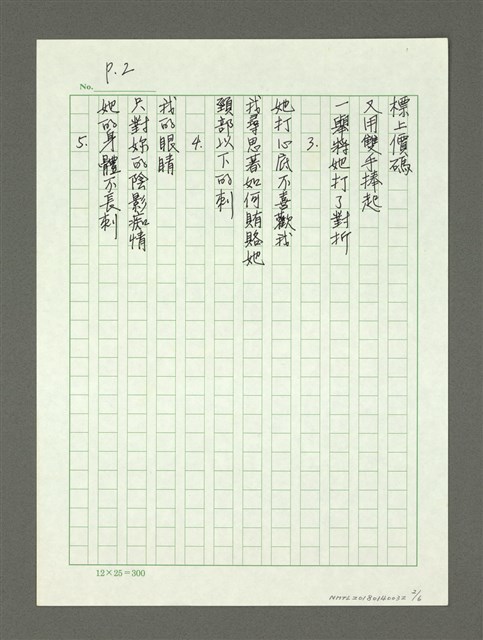 P.2
No.
標上價碼
又用雙手捧起
一舉將她打了對折
3.
她打心底不喜歡我
我尋思著如何賄賂她
頸部以下的刺
4.
我的眼睛
只對妳的陰影痴情
她的身體不長刺
5.
12×25=300
NMTL20180140032 2/6